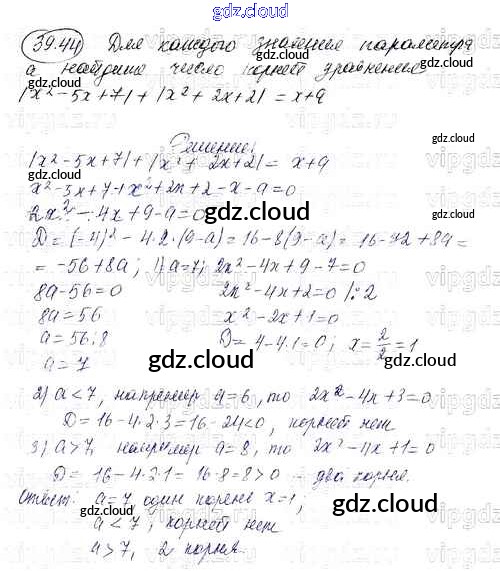 gdz.cloud
39.44 Для каждого значения параметра
а найдите число корней уравнения
|x² - 5x + 7| + |x² + 2x + 2| = x + a
gdz.cloud
Решение:
|x² - 5x + 7| + |x² + 2x + 2| = x + a
x² - 5x + 7 + x² + 2x + 2 - x - a = 0
2x² - 4x + 9 - a = 0
gdz.cloud
D = (-4)² - 4·2·(9-a) = 16 - 8(9-a) = 16 - 72 + 8a =
= -56 + 8a; 1) a = 7; 2x² - 4x + 9 - 7 = 0
8a - 56 = 0 2x² - 4x + 2 = 0 |:2
8a = 56 x² - 2x + 1 = 0
a = 56:8 D = 4 - 4·1 = 0; x = 2/2 = 1
a = 7
gdz.cloud
2) a < 7, например a = 6, то 2x² - 4x + 3 = 0
D = 16 - 4·2·3 = 16 - 24 < 0, корней нет
3) a > 7, например a = 8, то 2x² - 4x + 1 = 0
D = 16 - 4·2·1 = 16 - 8 = 8 > 0 - два корня.
Ответ: a = 7 один корень x = 1,
a < 7, корней нет
a > 7, 2 корня.
gdz.cloud